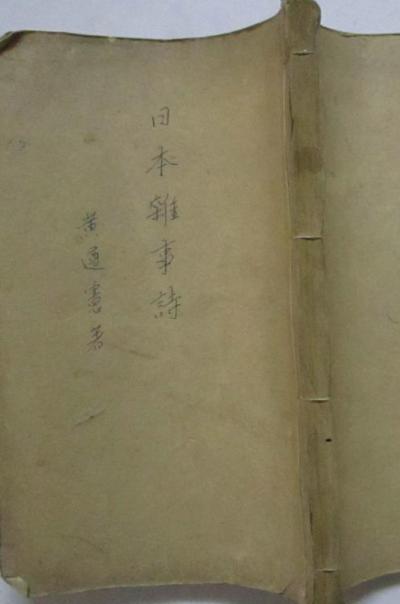 日本雜事詩
黄遵憲著